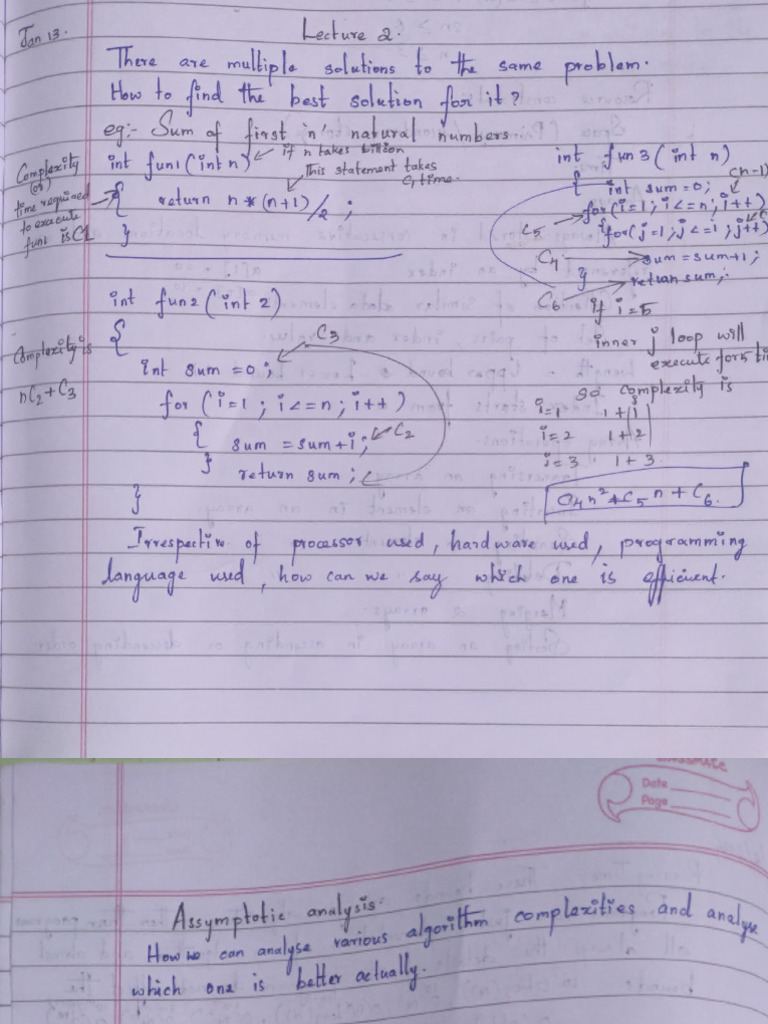 Jan 13.
Lecture 2.
There are multiple solutions to the same problem.
How to find the best solution for it?
eg:- Sum of first 'n' natural numbers
int fun1(int n) if n takes billion
This statement takes
C1 time.
{ return n*(n+1)/2 ;
}
Complexity
(or)
time required
to execute
fun1 is C1
int fun2(int 2)
{
C3
int sum =0;
for (i=1 ; i<=n; i++)
{ sum =sum+i; C2
}
return sum ;
}
Complexity is
nC2 + C3
int fun3(int n)
C(n-1)
{ int sum=0;
C5 for(i=1; i<=n; i++)
for(j=1; j<=1; j++)
C4 sum=sum+1;
}
return sum;
C6
if i=5
inner j loop will
execute for 5
so complexity is
i=1 1+1
i=2 1+2
i=3 1+3
C4n²+C5n+C6.
Irrespective of processor used, hardware used, programming
language used, how can we say which one is efficient.
Date
Page
Assymptotic analysis.
How we can analyse various algorithm complexities and analyse
which one is better actually.